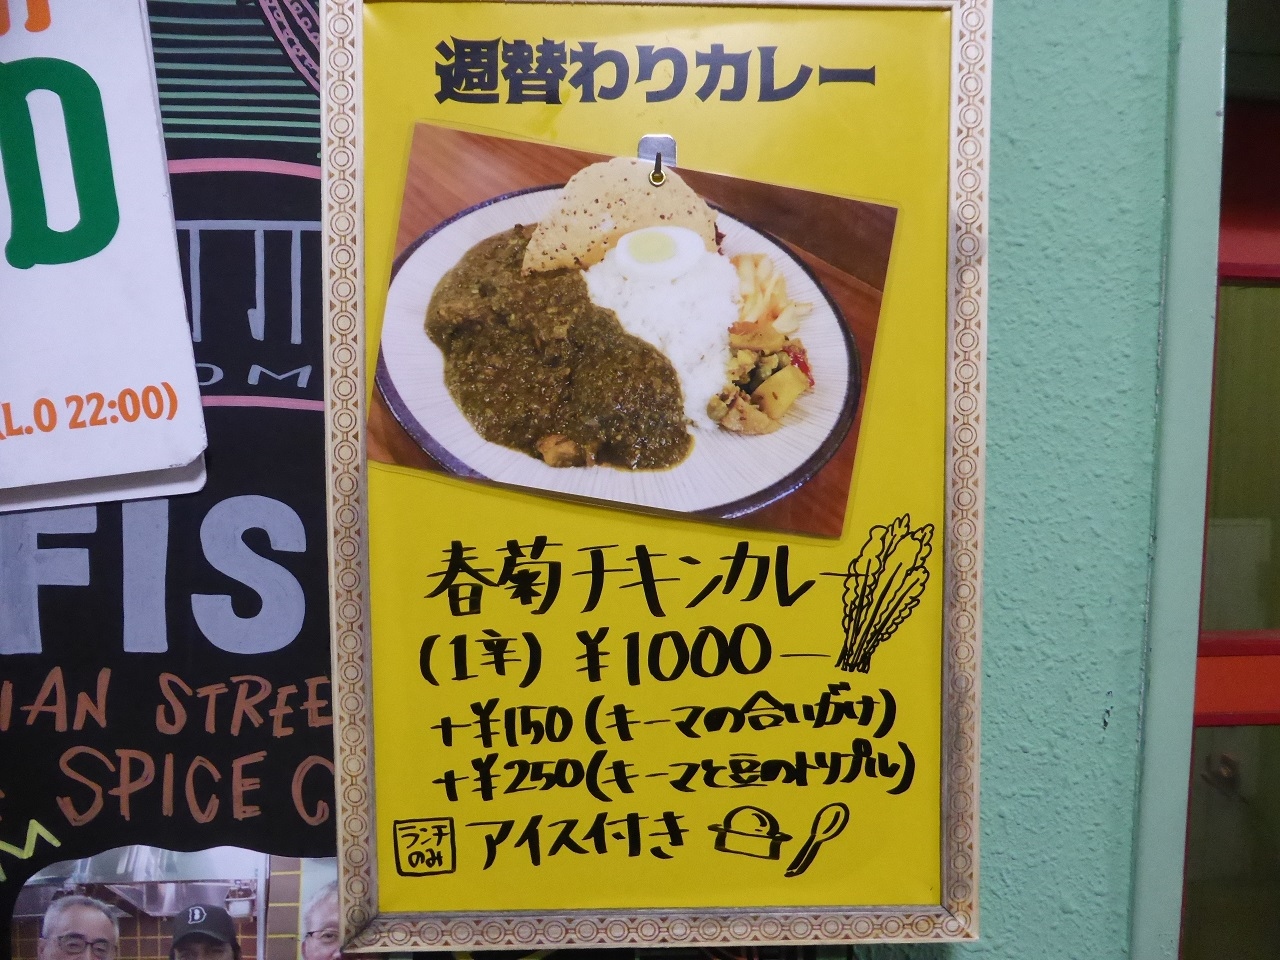 週替わりカレー
春菊チキンカレー
(1辛) ¥1000
+¥150(キーマの合いがけ)
+¥250(キーマと豆のトリプル)
ランチのみ アイス付き
D
(L.O 22:00)
OM
FIS
IAN STREE
SPICE C
B